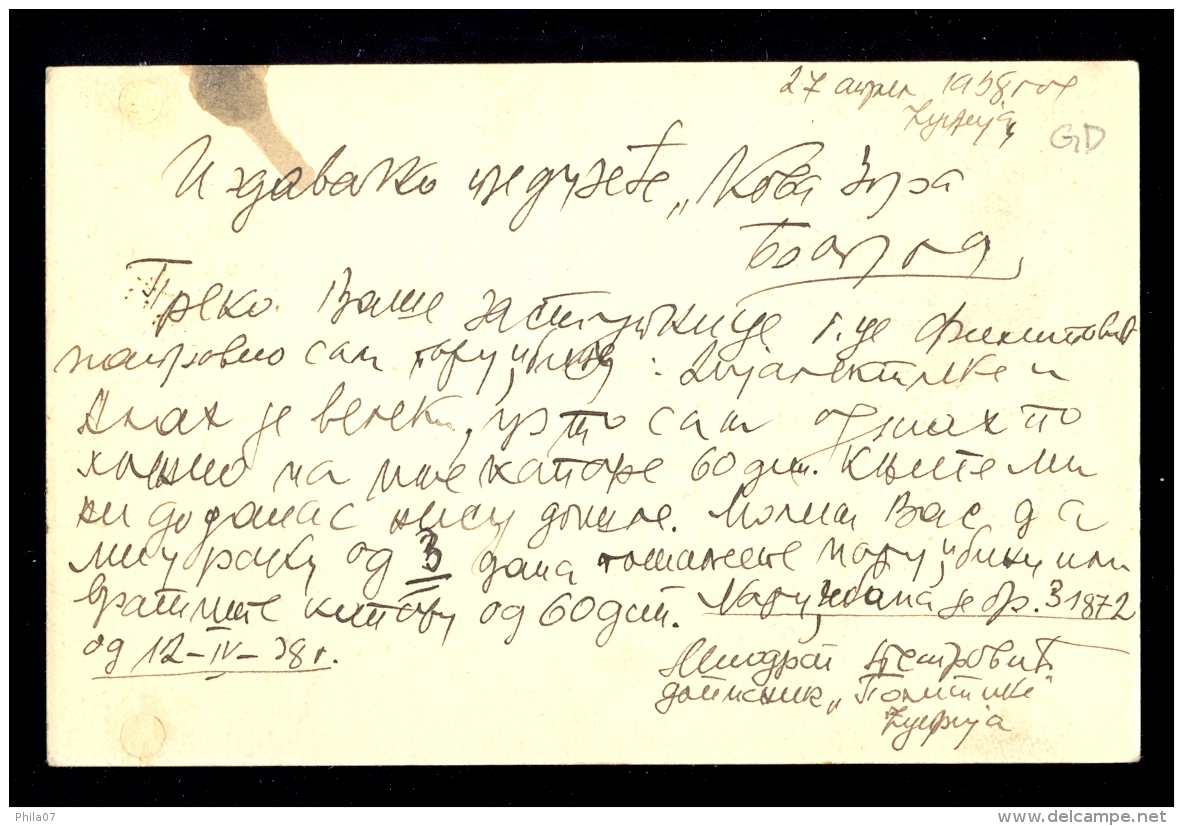 27 април 1938 год
Ћуприја,
GD
Издавачко предузеће „Нова Зора
Београд,
Преко Ваше заступнице г.це Филиповић
сам поруџбину : Дијалектике и
је велеки, и то сам одмах по
на име капаре 60 дин. Књиге ми
ни до данас нису дошле. Молим Вас да
ми у року од 3 дана пошаљете поруџбину или
вратите капару од 60 дин. Наруџбина је бр. 31872
од 12-IV-38 г.
Миодраг Петровић
дописник „Политике"
Ћуприја
Phila07
www.delcampe.net